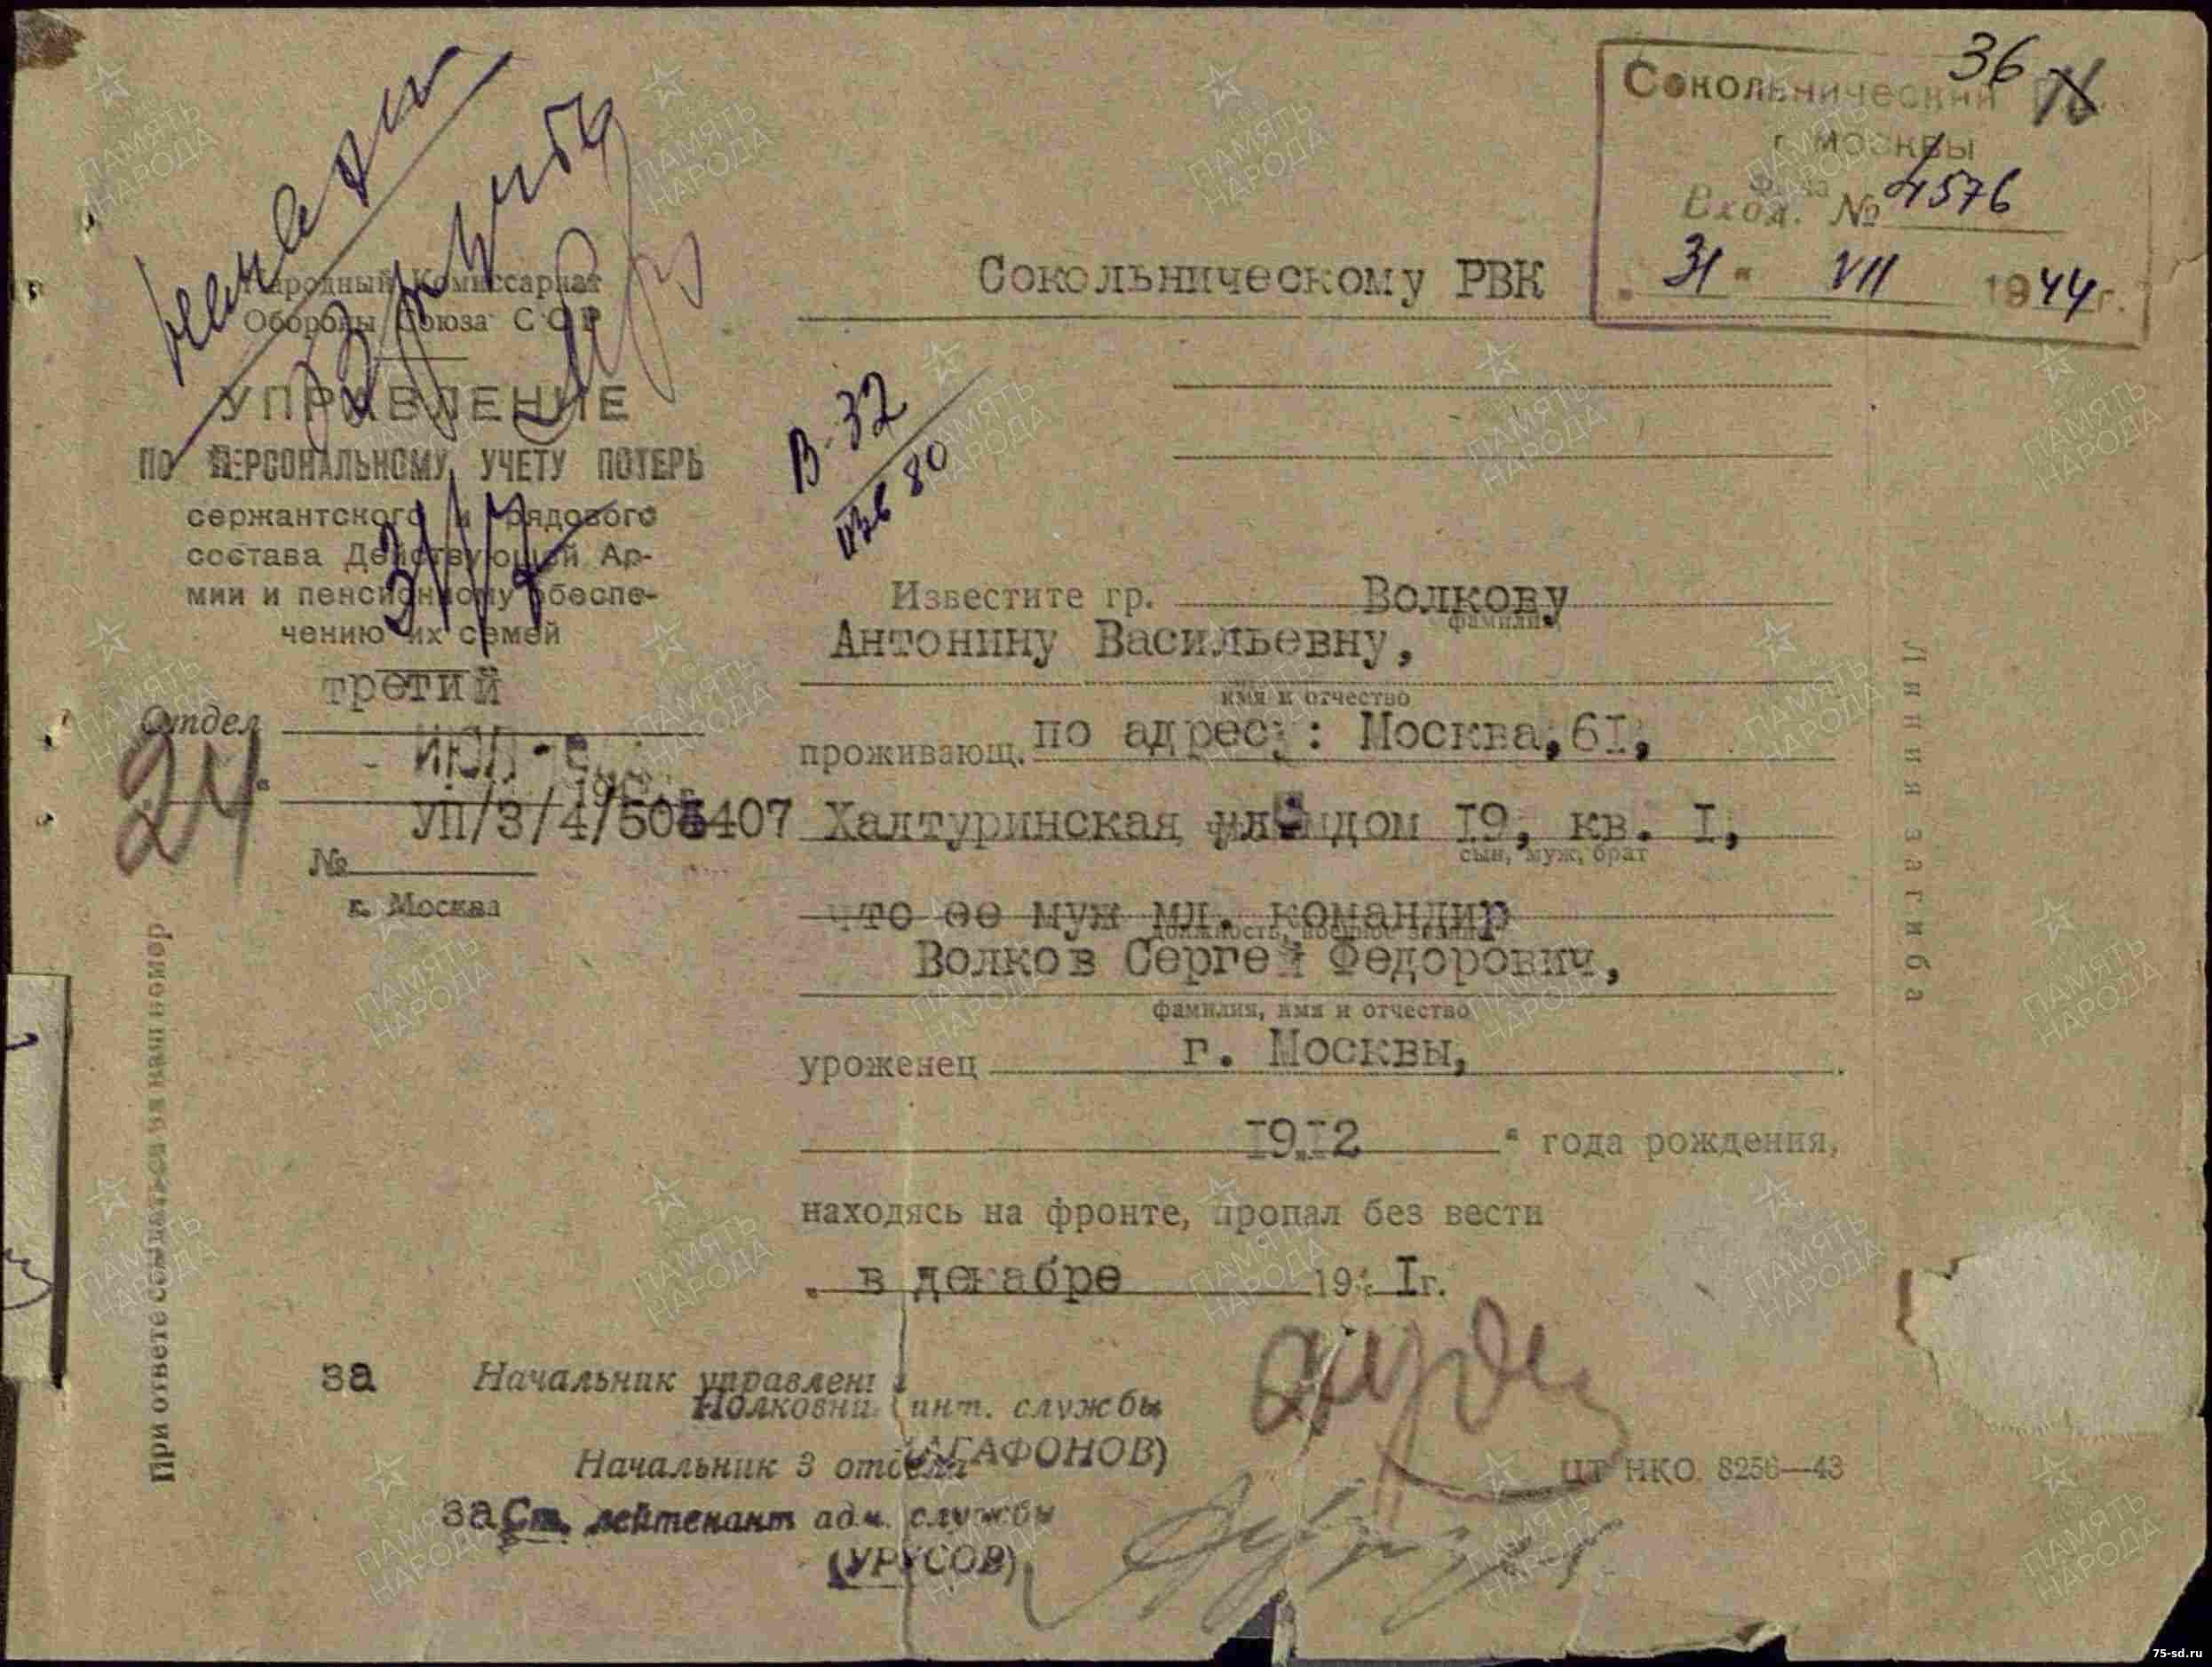 36
Сокольнический
г. МОСКВЫ
Вход. № 4576
31 " VII 1944 г.
Народный Комиссариат
Обороны Союза ССР
УПРАВЛЕНИЕ
ПО ПЕРСОНАЛЬНОМУ УЧЕТУ ПОТЕРЬ
сержантского и рядового
состава Действующей Ар-
мии и пенсионному обеспе-
чению их семей
третий
Отдел
24
УП/3/4/505407
№
г. Москва
При ответе ссылаться на наш номер
Сокольническому РВК
В-32
Известите гр. Волкову
фамилия
Антонину Васильевну,
имя и отчество
проживающ. по адресу: Москва, 61,
Халтуринская ул. дом I9, кв. I,
сын, муж, брат
что ее муж мл. командир
должность, военное звание
Волков Сергей Федорович,
фамилия, имя и отчество
уроженец г. Москвы,
I9I2 года рождения,
находясь на фронте, пропал без вести
в декабре 194Iг.
за Начальник управлени
Полковни инт. службы
(АГАФОНОВ)
Начальник 3 отдела
за Ст. лейтенант адм. службы
(УРУСОВ)
ЦТ НКО. 8256—43
Линия загиба
ПАМЯТЬ
НАРОДА
75-sd.ru